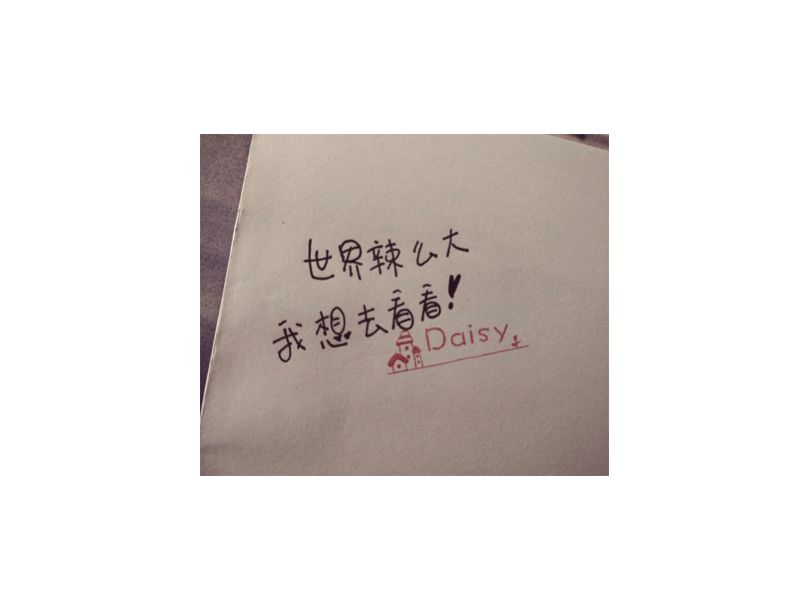 世界辣么大
我想去看看!
Daisy